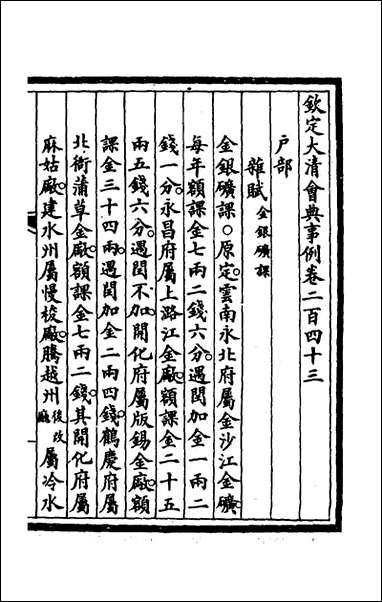 欽定大清會典事例卷二百四十三
户部
雜賦金銀礦課
金銀礦課○原定雲南永北府屬金沙江金礦
每年額課金七兩二錢六分遇閏加金一兩二
錢一分永昌府屬上潞江金廠額課金二十五
兩五錢六分遇閏不加開化府屬版錫金廠額
課金三十四兩遇閏加金二兩四錢鶴慶府屬
北衙蒲草金廠額課金七兩二錢其開化府屬
麻姑廠建水州屬慢梭廠騰越州後改廳屬冷水